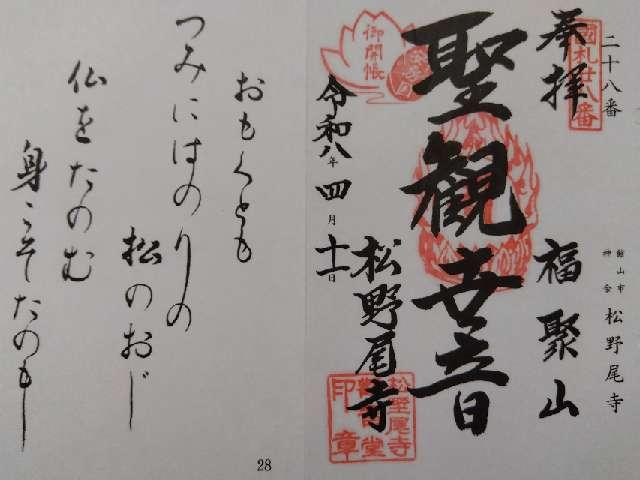 二十八番
館山市
神余
松野尾寺
奉拝
國札廿八番
福聚山
聖觀世音
御開帳
令和八年四月十一日
松野尾寺
松野尾寺
印章
おもくとも
つみにはのりの
松のおじ
仏をたのむ
身こそたのもし
28